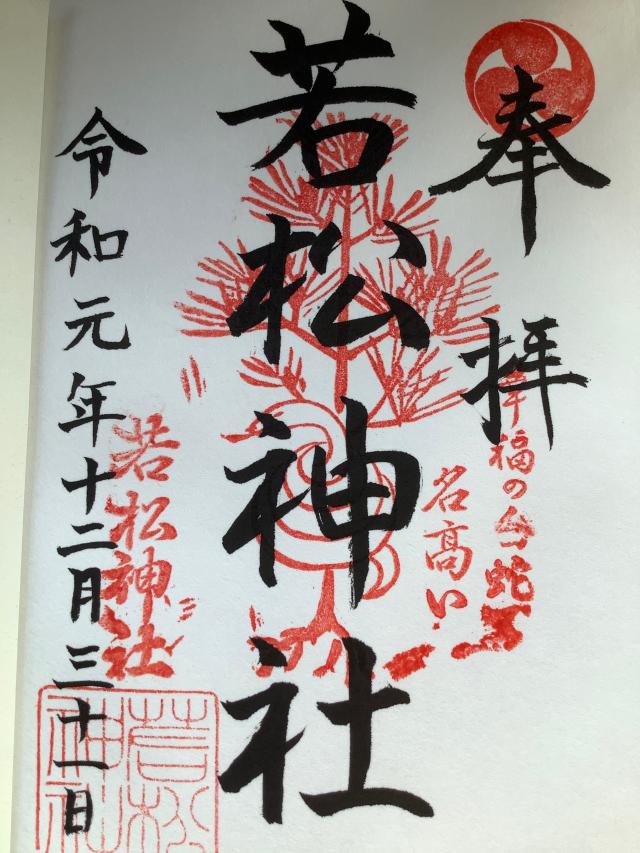 奉拝
幸福の白蛇
名高い
若松神社
若松神社
令和元年十二月三十一日
若松神社